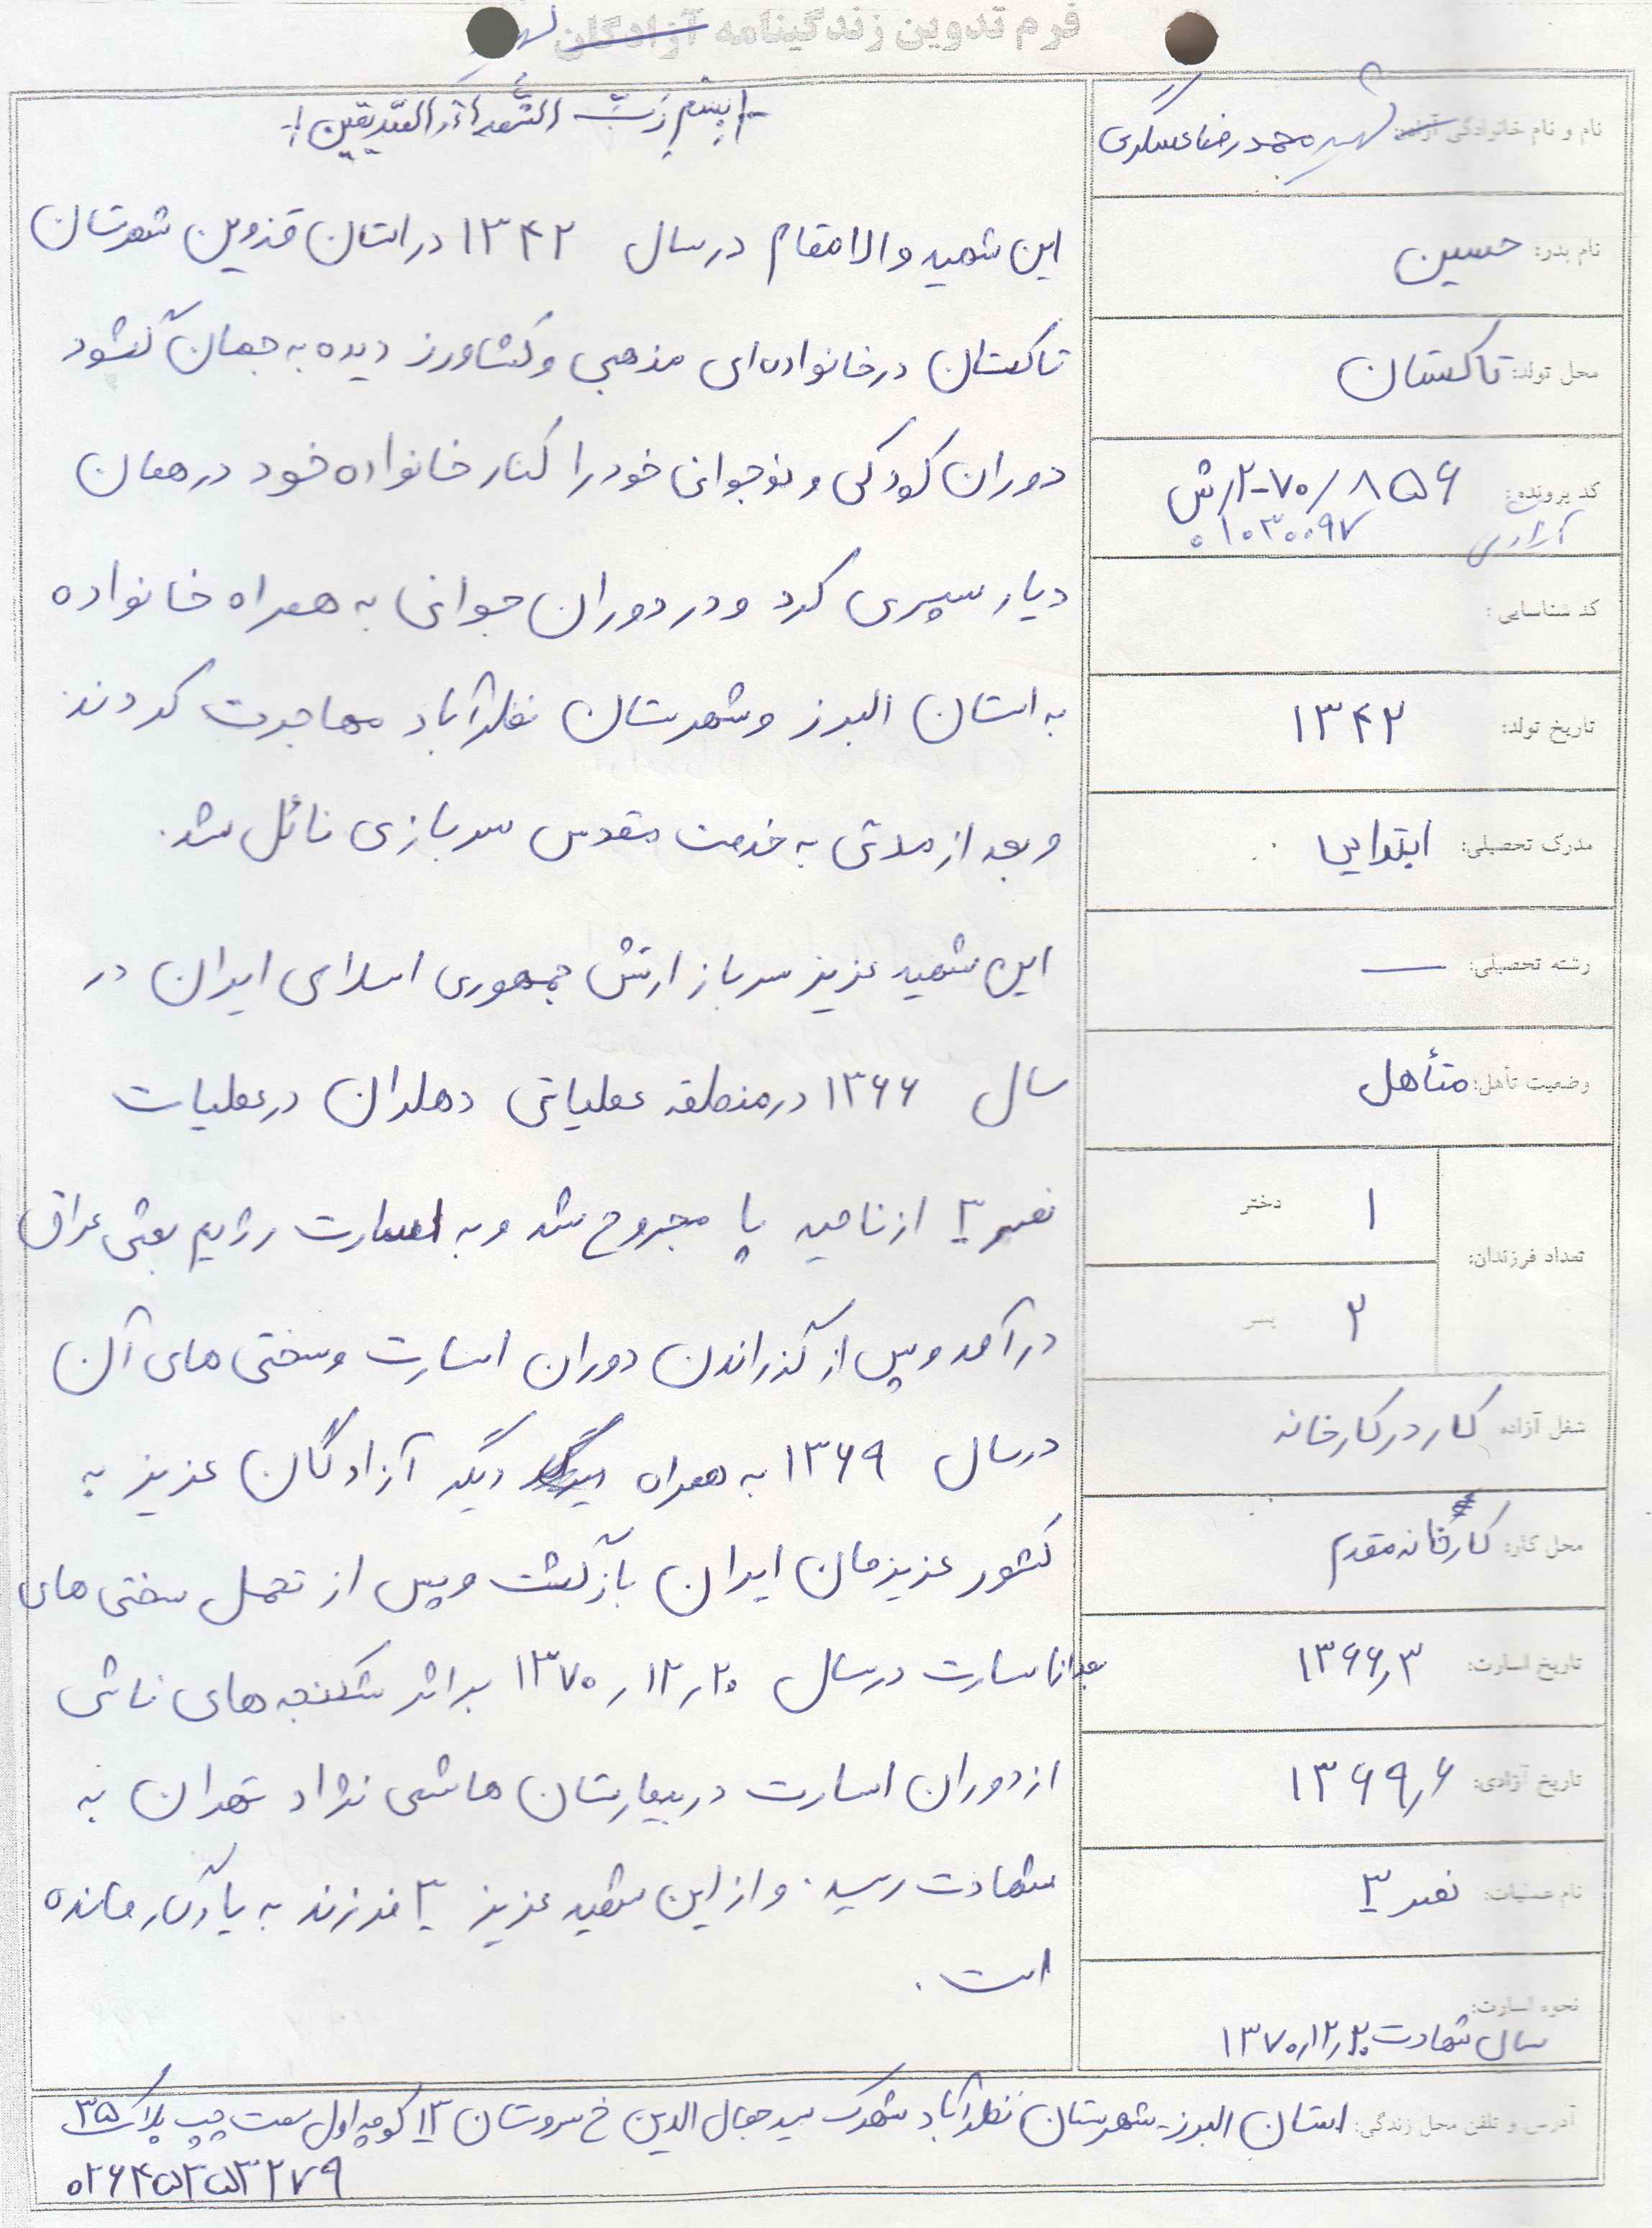 فرم تدوین زندگینامه آزادگان شهید
نام و نام خانوادگی آزاده: شهید محمدرضا عسگری
نام پدر: حسین
محل تولد: تاکستان
کد پرونده: ۲-۷۰/۸۵۶/رش
آزادی ۰۱۰۳۰۰۹۷
کد شناسایی:
تاریخ تولد: ۱۳۴۲
مدرک تحصیلی: ابتدایی
رشته تحصیلی: —
وضعیت تأهل: متأهل
تعداد فرزندان:
۱ دختر
۲ پسر
شغل آزاده کار در کارخانه
محل کار: کارخانه مقدم
تاریخ اسارت: ۱۳۶۶٫۳
تاریخ آزادی: ۱۳۶۹٫۶
نام عملیات: نصر ۳
نحوه اسارت:
سال شهادت ۱۳۷۰٫۱۲٫۲۰
بسم رب الشهداء و الصدیقین
این شهید والامقام در سال ۱۳۴۲ در استان قزوین شهرستان
تاکستان در خانواده‌ای مذهبی و کشاورز دیده به جهان گشود
دوران کودکی و نوجوانی خود را کنار خانواده خود در همان
دیار سپری کرد و در دوران جوانی به همراه خانواده
به استان البرز و شهرستان نظرآباد مهاجرت کردند
و بعد از مدتی به خدمت مقدس سربازی نائل شد.
این شهید عزیز سرباز ارتش جمهوری اسلامی ایران در
سال ۱۳۶۶ در منطقه عملیاتی دهلران در عملیات
نصر ۳ از ناحیه پا مجروح شد و به اسارت رژیم بعثی عراق
درآمد و پس از گذراندن دوران اسارت و سختی های آن
در سال ۱۳۶۹ به همراه دیگر آزادگان عزیز به
کشور عزیزمان ایران بازگشت و پس از تحمل سختی های
بعد از اسارت در سال ۱۳۷۰٫۱۲٫۲۰ بر اثر شکنجه های ناشی
از دوران اسارت در بیمارستان هاشمی نژاد تهران به
شهادت رسید. و از این شهید عزیز ۳ فرزند به یادگار مانده
است.
آدرس و تلفن محل زندگی: استان البرز-شهرستان نظرآباد شهرک سید جمال الدین خ سروستان ۱۳ کوچه اول سمت چپ پلاک ۳۵
۰۲۶۴۵۳۵۳۲۷۹